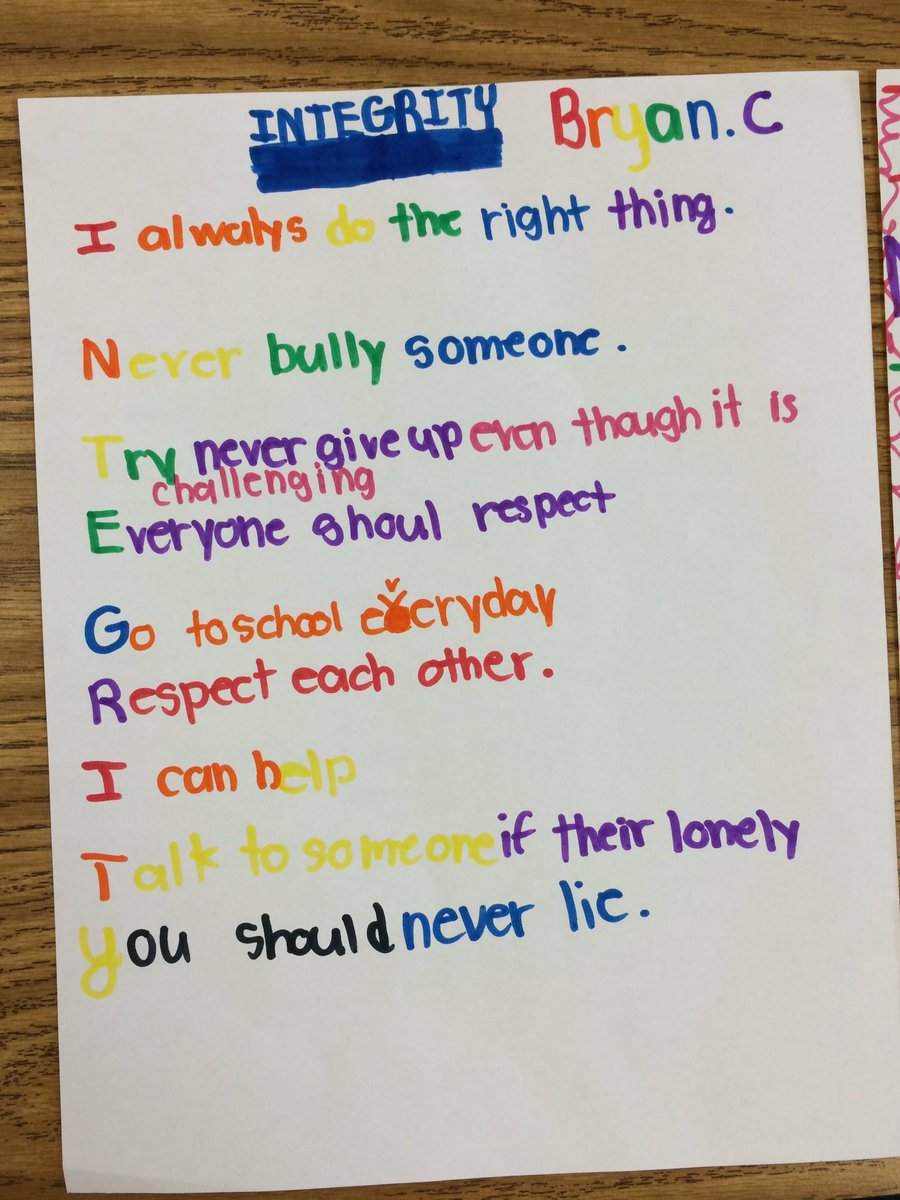 INTEGRITY Bryan. C
I always do the right thing.
Never bully someone.
Try never give up even though it is
challenging
Everyone shoul respect
Go to school everyday
Respect each other.
I can help
Talk to someone if their lonely
You should never lie.